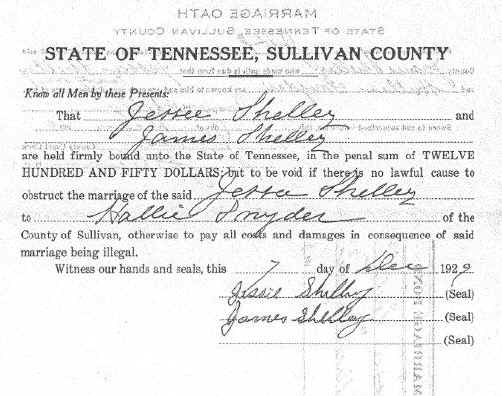 MARRIAGE OATH
STATE OF TENNESSEE, SULLIVAN COUNTY
STATE OF TENNESSEE, SULLIVAN COUNTY
Know all Men by these Presents:
That Jessee Shelley and
James Shelley
are held firmly bound unto the State of Tennessee, in the penal sum of TWELVE
HUNDRED AND FIFTY DOLLARS; but to be void if there is no lawful cause to
obstruct the marriage of the said Jesse Shelley
to Hallie Snyder of the
County of Sullivan, otherwise to pay all costs and damages in consequence of said
marriage being illegal.
Witness our hands and seals, this 7 day of Dec 1929
Jessie Shelley (Seal)
James Shelley (Seal)
(Seal)